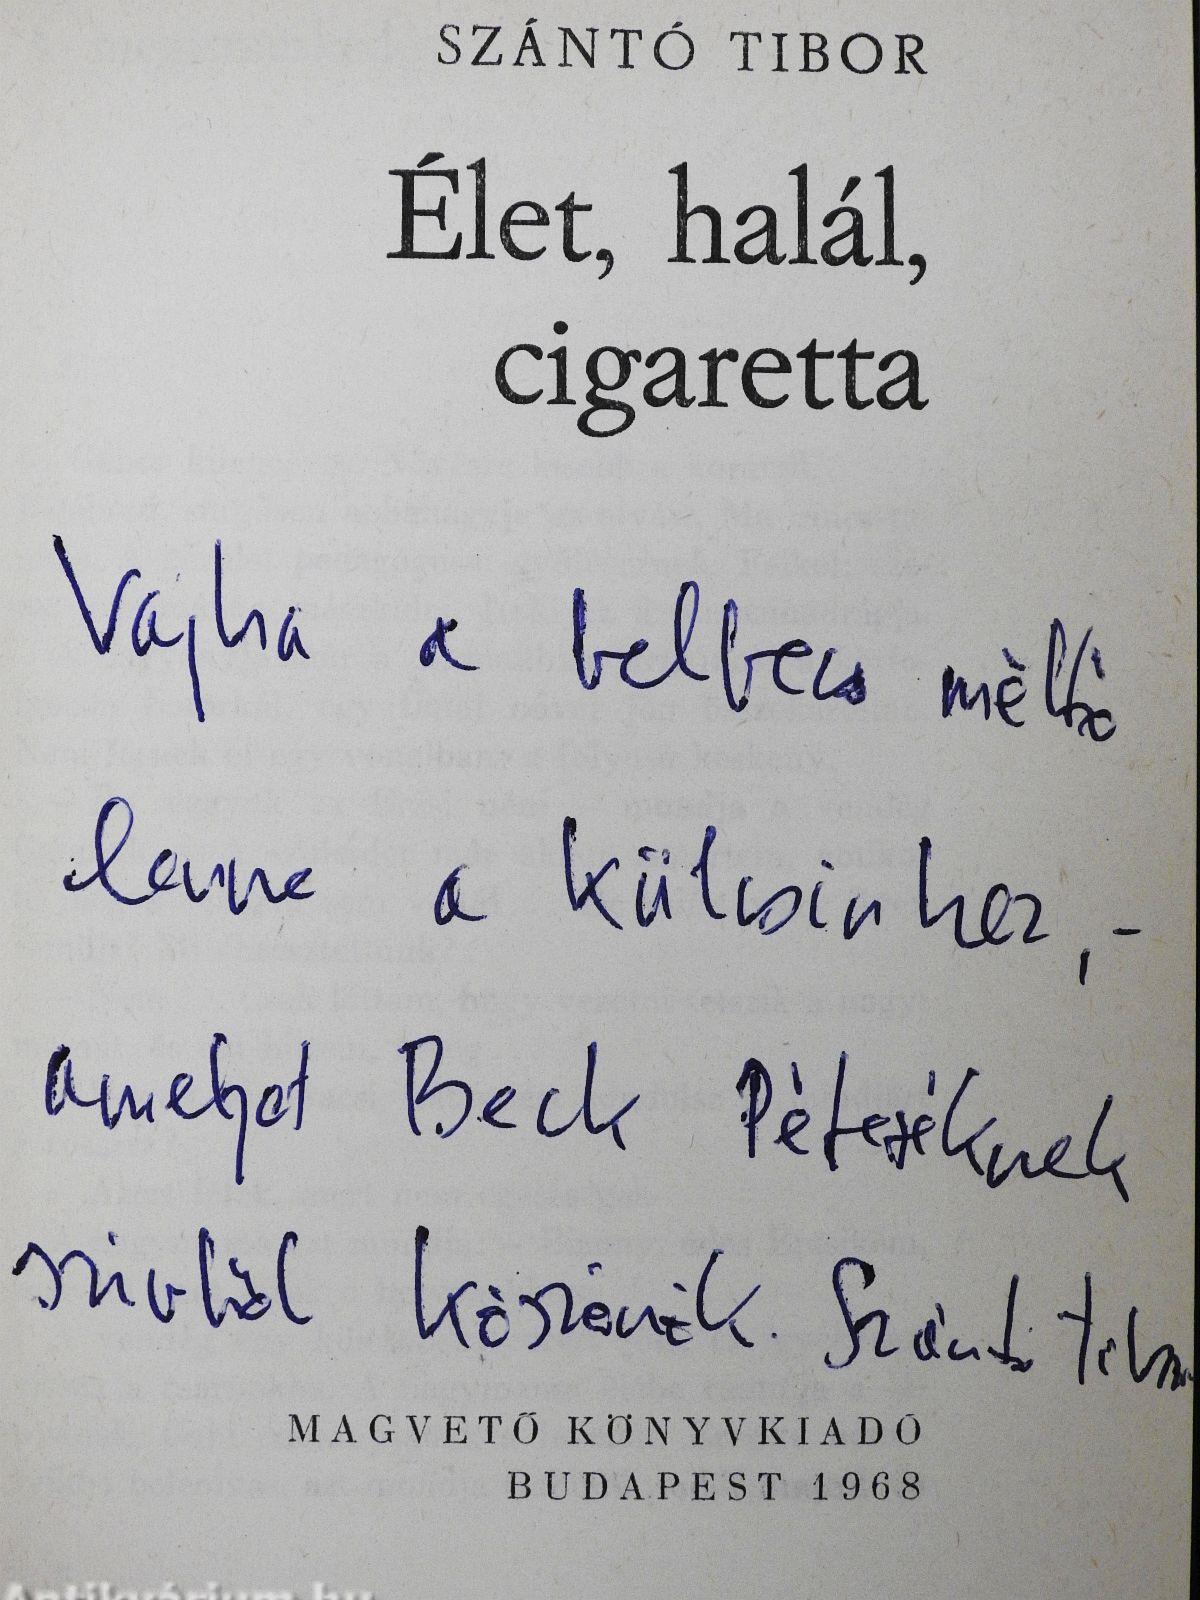 SZÁNTÓ TIBOR
Élet, halál,
cigaretta
Vajha a belbecs méltó
lenne a külcsinhez,-
amelyet Beck Péteréknek
szivböl köszönök. Szántó Tibor
MAGVETŐ KÖNYVKIADÓ
BUDAPEST 1968
Antikvárium.hu